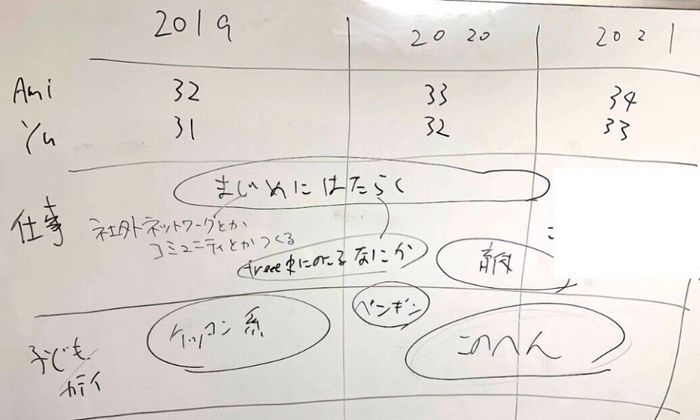 2019 2020 2021
Ami 32 33 34
Yu 31 32 33
まじめにはたらく
仕事
社外ネットワークとか
コミュニティとかつくる
freee史にのこるなにか
育休
ペンギン
ケッコン系
このへん
子ども
カテイ